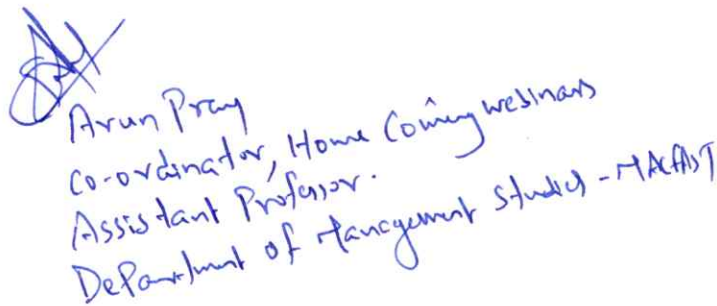 Arun Prary
Co-ordinator, Home Coming webinars
Assistant Professor.
Department of Management Studies - MACFAST